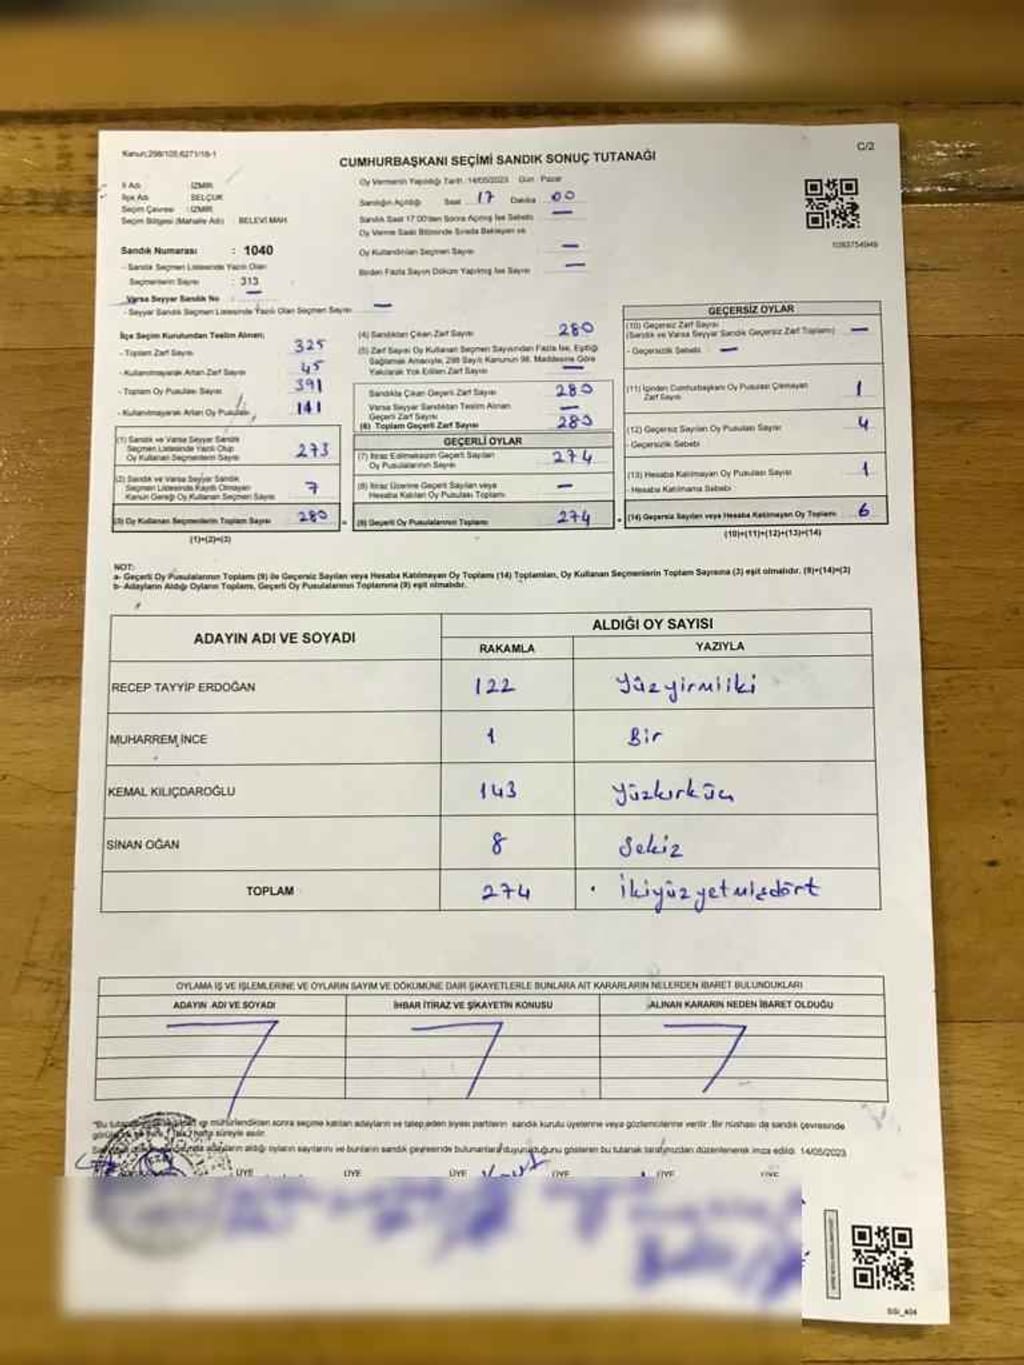 Kanun;298/105;6271/18-1
C/2
CUMHURBAŞKANI SEÇİMİ SANDIK SONUÇ TUTANAĞI
İl Adı : İZMİR
İlçe Adı : SELÇUK
Seçim Çevresi : İZMİR
Seçim Bölgesi (Mahalle Adı) : BELEVİ MAH.
Sandık Numarası : 1040
- Sandık Seçmen Listesinde Yazılı Olan
Seçmenlerin Sayısı : 313
Varsa Seyyar Sandık No —
- Seyyar Sandık Seçmen Listesinde Yazılı Olan Seçmen Sayısı —
Oy Vermenin Yapıldığı Tarih : 14/05/2023 Gün : Pazar
Sandığın Açıldığı Saat 17 Dakika 00
Sandık Saat 17:00'den Sonra Açılmış İse Sebebi —
Oy Verme Saati Bitiminde Sırada Bekleyen ve
Oy Kullandırılan Seçmen Sayısı —
Birden Fazla Sayım Döküm Yapılmış İse Sayısı —
İlçe Seçim Kurulundan Teslim Alınan;
- Toplam Zarf Sayısı 325
- Kullanılmayarak Artan Zarf Sayısı 45
- Toplam Oy Pusulası Sayısı 391
- Kullanılmayarak Artan Oy Pusulası 141
(1) Sandık ve Varsa Seyyar Sandık
Seçmen Listesinde Yazılı Olup
Oy Kullanan Seçmenlerin Sayısı 273
(2) Sandık ve Varsa Seyyar Sandık
Seçmen Listesinde Kayıtlı Olmayan
Kanun Gereği Oy Kullanan Seçmen Sayısı 7
(3) Oy Kullanan Seçmenlerin Toplam Sayısı 280
(1)+(2)=(3)
(4) Sandıktan Çıkan Zarf Sayısı 280
(5) Zarf Sayısı Oy Kullanan Seçmen Sayısından Fazla İse, Eşitliği
Sağlamak Amacıyla, 298 Sayılı Kanunun 98. Maddesine Göre
Yakılarak Yok Edilen Zarf Sayısı —
Sandıkta Çıkan Geçerli Zarf Sayısı 280
Varsa Seyyar Sandıktan Teslim Alınan
Geçerli Zarf Sayısı —
(6) Toplam Geçerli Zarf Sayısı 280
GEÇERLİ OYLAR
(7) İtiraz Edilmeksizin Geçerli Sayılan
Oy Pusulalarının Sayısı 274
(8) İtiraz Üzerine Geçerli Sayılan veya
Hesaba Katılan Oy Pusulası Toplamı —
(9) Geçerli Oy Pusulalarının Toplamı 274
GEÇERSİZ OYLAR
(10) Geçersiz Zarf Sayısı
(Sandık ve Varsa Seyyar Sandık Geçersiz Zarf Toplamı) —
- Geçersizlik Sebebi —
(11) İçinden Cumhurbaşkanı Oy Pusulası Çıkmayan
Zarf Sayısı 1
(12) Geçersiz Sayılan Oy Pusulası Sayısı 4
- Geçersizlik Sebebi
(13) Hesaba Katılmayan Oy Pusulası Sayısı 1
- Hesaba Katılmama Sebebi
(14) Geçersiz Sayılan veya Hesaba Katılmayan Oy Toplamı 6
(10)+(11)+(12)+(13)=(14)
NOT:
a- Geçerli Oy Pusulalarının Toplamı (9) ile Geçersiz Sayılan veya Hesaba Katılmayan Oy Toplamı (14) Toplamları, Oy Kullanan Seçmenlerin Toplam Sayısına (3) eşit olmalıdır. (9)+(14)=(3)
b- Adayların Aldığı Oyların Toplamı, Geçerli Oy Pusulalarının Toplamına (9) eşit olmalıdır.
ADAYIN ADI VE SOYADI ALDIĞI OY SAYISI
RAKAMLA YAZIYLA
RECEP TAYYİP ERDOĞAN 122 Yüzyirmiiki
MUHARREM İNCE 1 Bir
KEMAL KILIÇDAROĞLU 143 Yüzkırküç
SİNAN OĞAN 8 Sekiz
TOPLAM 274 İkiyüzyetmişdört
OYLAMA İŞ VE İŞLEMLERİNE VE OYLARIN SAYIM VE DÖKÜMÜNE DAİR ŞİKAYETLERLE BUNLARA AİT KARARLARIN NELERDEN İBARET BULUNDUKLARI
ADAYIN ADI VE SOYADI İHBAR İTİRAZ VE ŞİKAYETİN KONUSU ALINAN KARARIN NEDEN İBARET OLDUĞU
mühürlendikten sonra seçime katılan adayların ve talep eden siyasi partilerin sandık kurulu üyelerine veya gözlemcilerine verilir. Bir nüshası da sandık çevresinde
hafta süreyle asılır.
adayların aldığı oyların sayılarını ve bunların sandık çevresinde bulunanlara duyurulduğunu gösteren bu tutanak tarafımızdan düzenlenerek imza edildi. 14/05/2023
ÜYE ÜYE ÜYE ÜYE ÜYE ÜYE